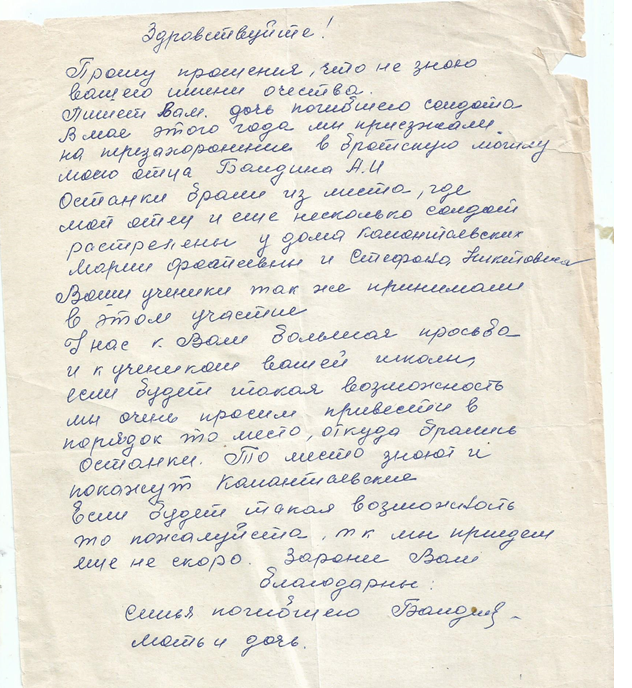 Здравствуйте!
Прошу прощения, что не знаю
вашего имени очества.
Пишет Вам. дочь погибшего солдата
В мае этого года мы приезжали
на перезахоронение в братскую могилу
моего отца Бандина А.И
Останки брали из места, где
мой отец и еще несколько солдат
растрелены у дома Калантаевских
Марии Фоатеевны и Стефана Никитовича
Ваши ученики так же принимали
в этом участие
У нас к Вам большая просьба
и к ученикам вашей школы,
если будет такая возможность
мы очень просим привести в
порядок то место, откуда брались
останки. То место знают и
покажут Калантаевские
Если будет такая возможность
то пожалуйста, т к мы приедем
еще не скоро. Заранее Вам
благодарны:
Семья погибшего
мать и дочь.